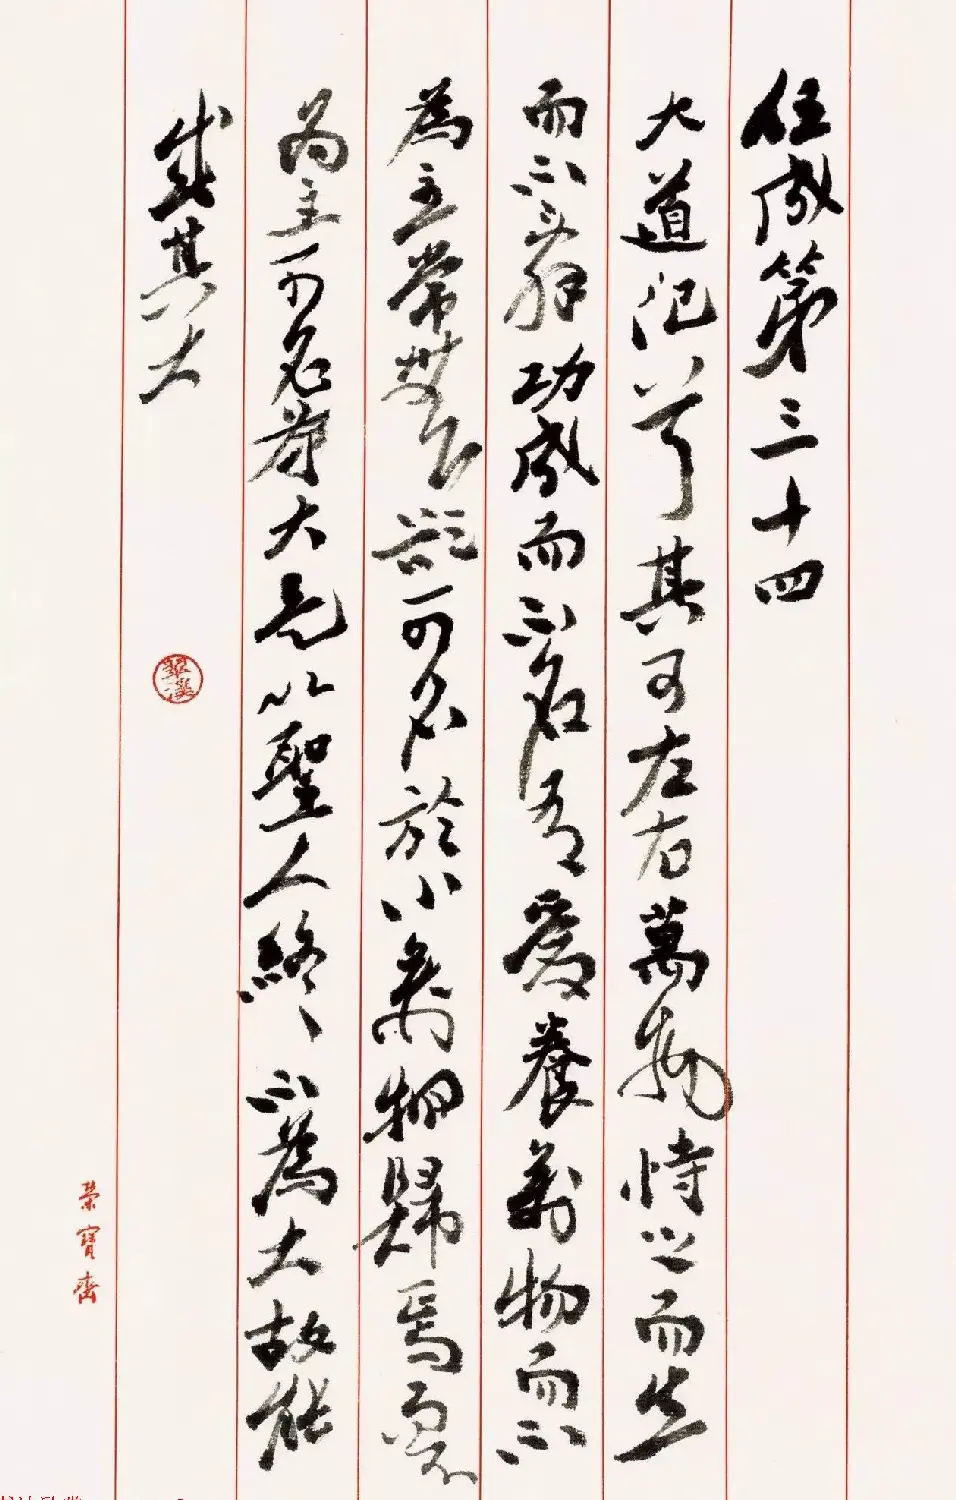 任成第三十四
大道汜兮其可左右萬物恃之而生
而不辭功成而不名有愛養萬物而不
為主常無欲可名於小萬物歸焉而不
為主可名為大是以聖人終不為大故能
成其大
榮寶齋